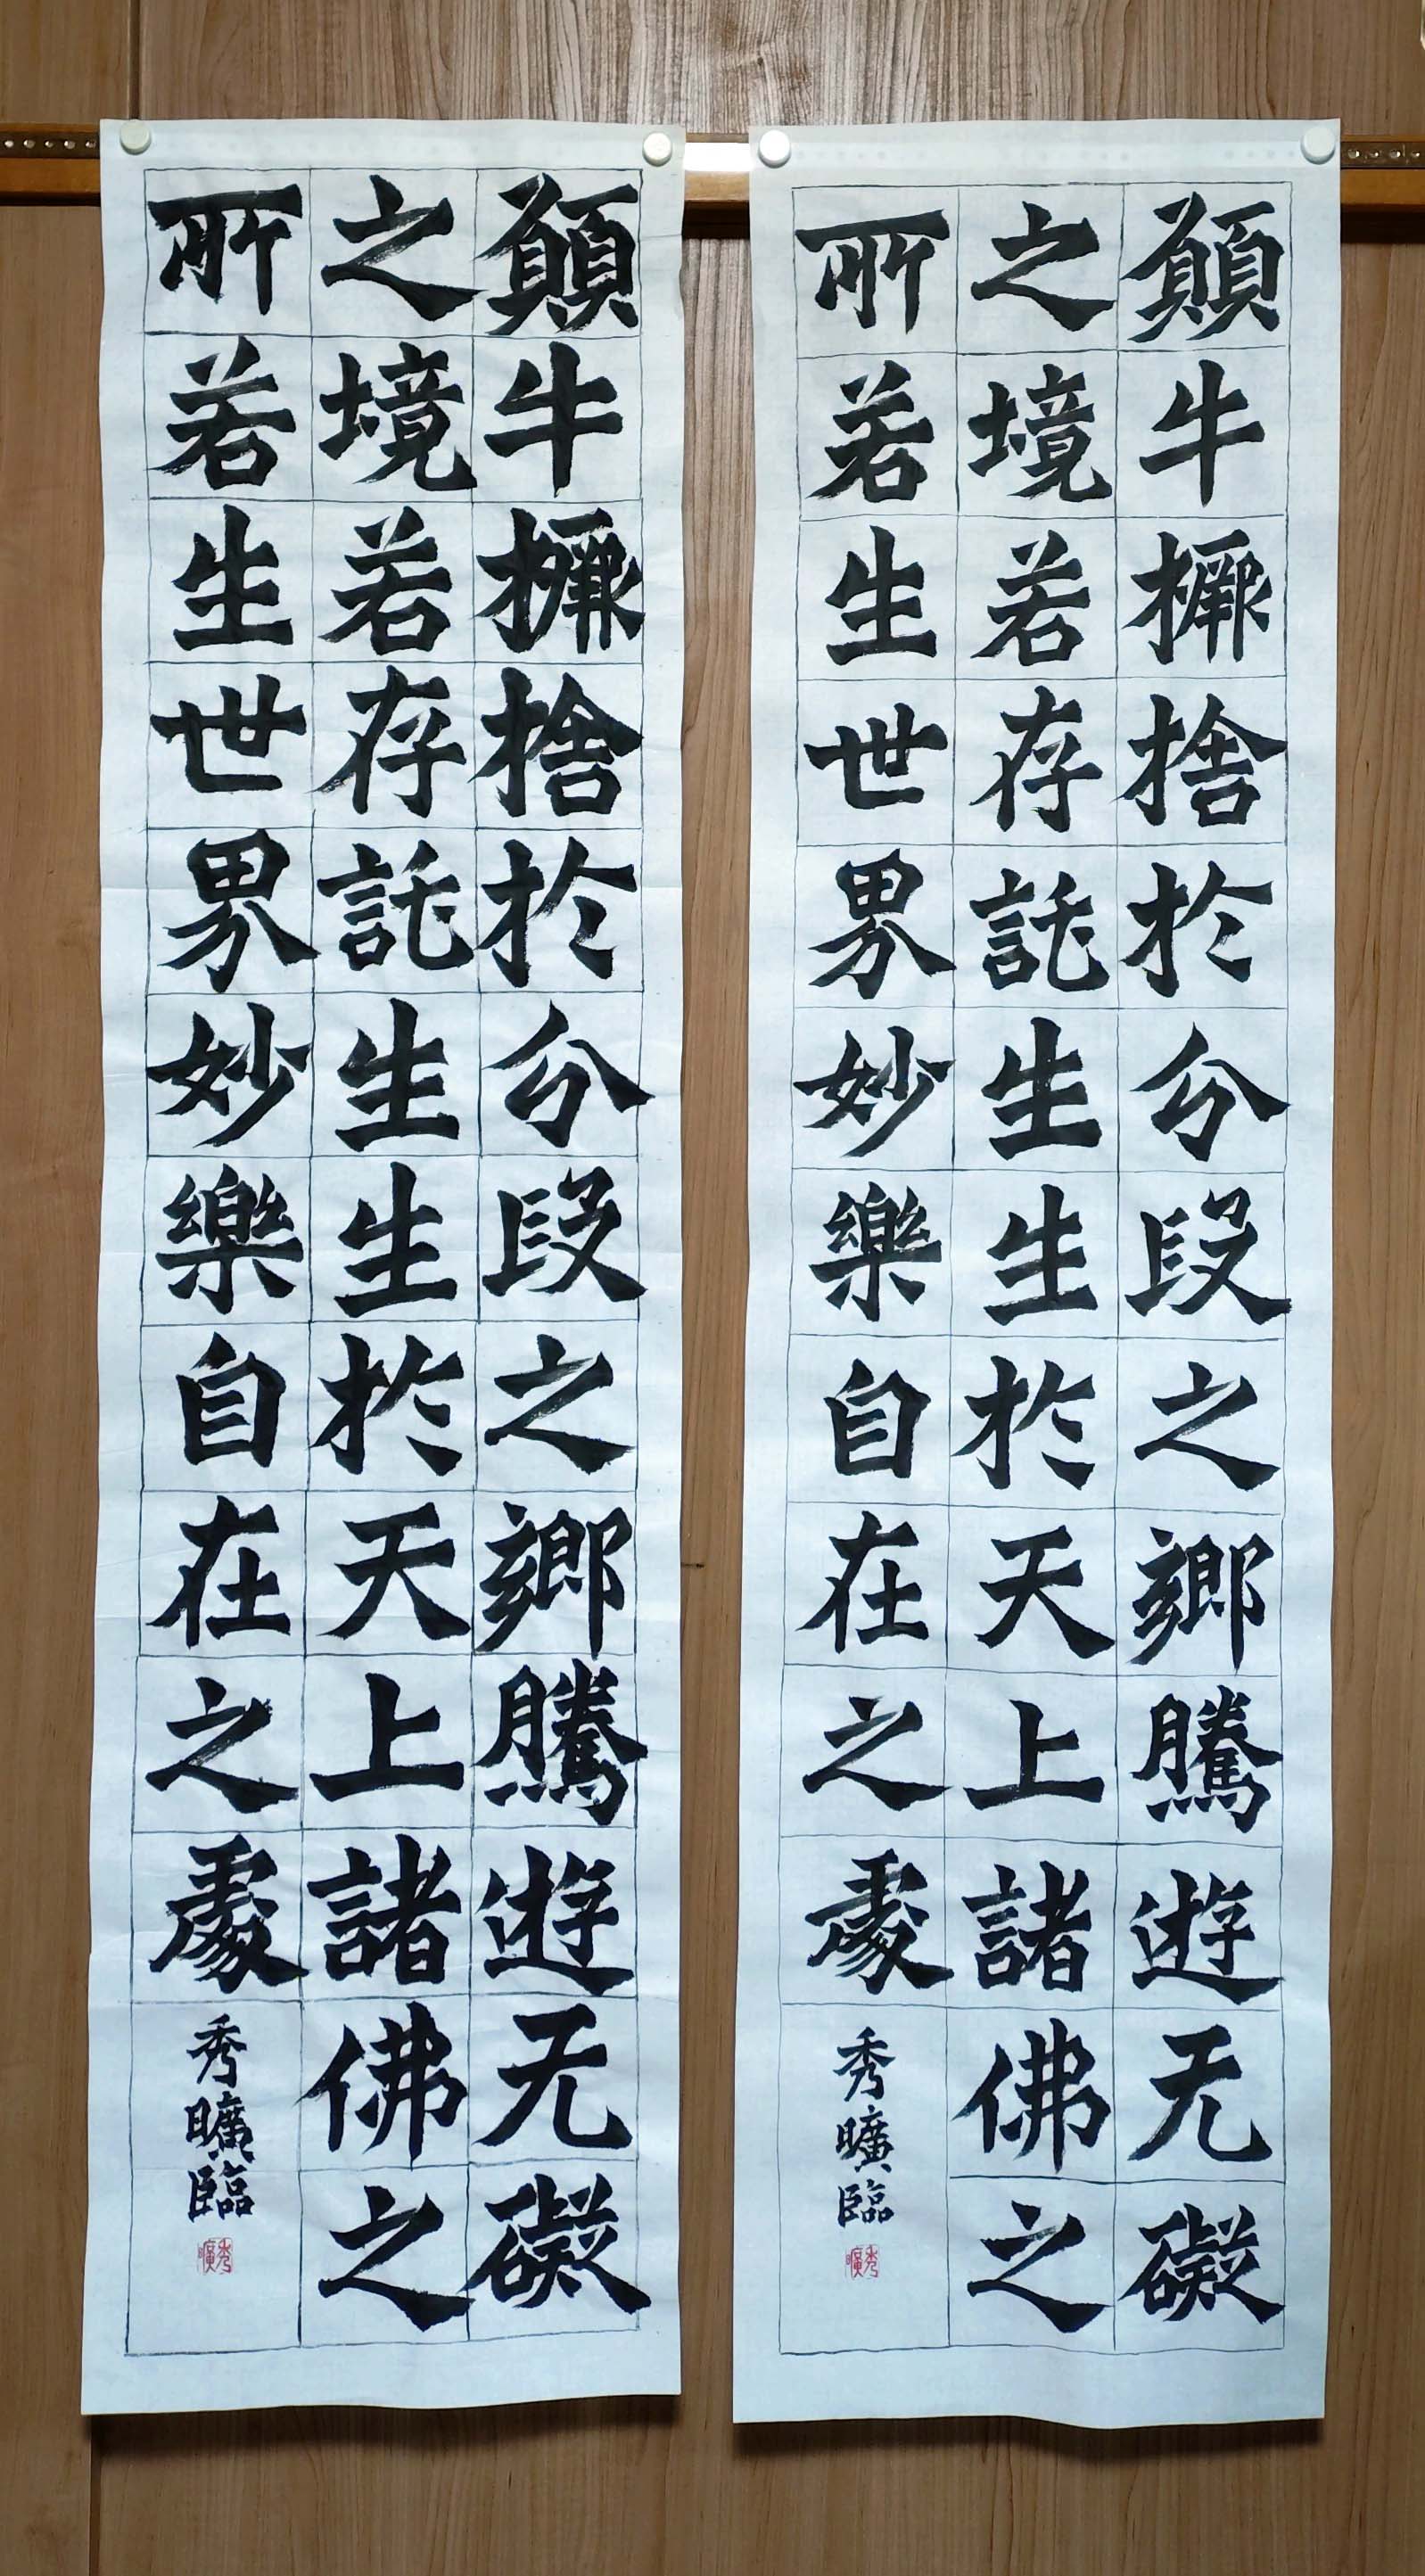 願牛橛捨於分段之鄉騰遊无礙
之境若存託生生於天上諸佛之
所若生世界妙樂自在之處
秀曠臨
秀曠
願牛橛捨於分段之鄉騰遊无礙
之境若存託生生於天上諸佛之
所若生世界妙樂自在之處
秀曠臨
秀曠